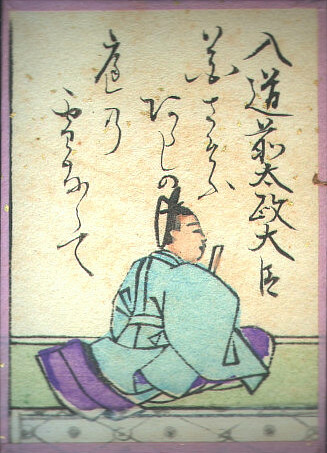 入道前太政大臣
花さそふ
あらしの
庭乃
雪ならて